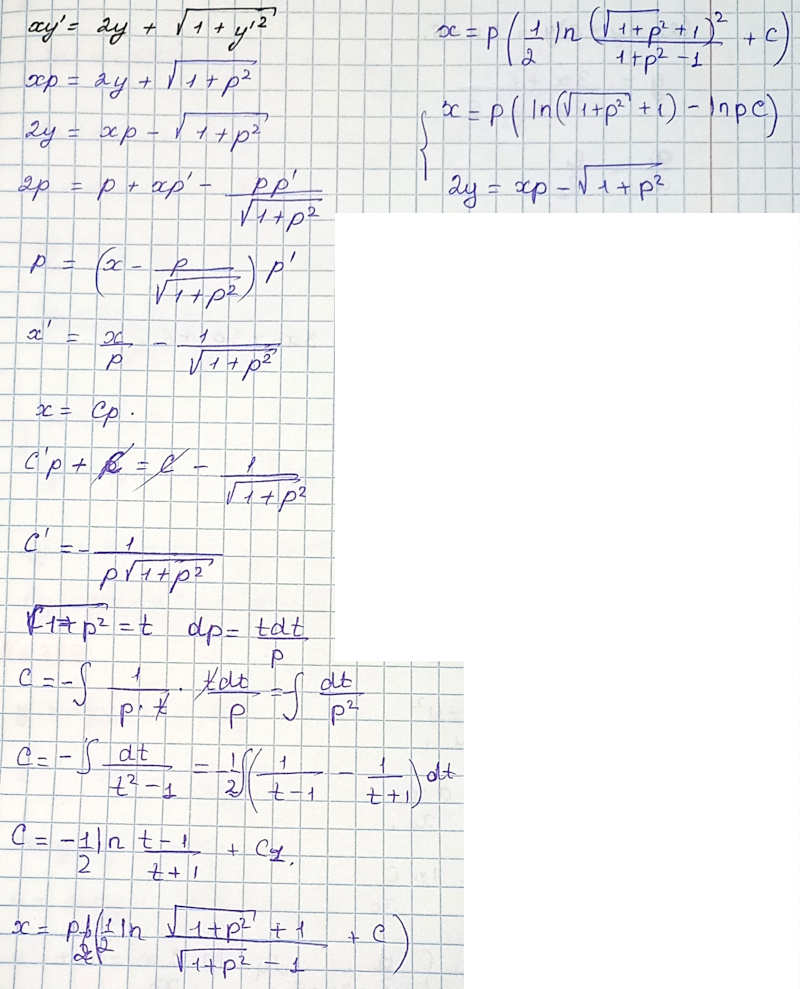 xy' = 2y + √(1 + y'²)
xp = 2y + √(1 + p²)
2y = xp − √(1 + p²)
2p = p + xp' − pp'/√(1 + p²)
p = (x − p/√(1 + p²)) p'
x' = x/p − 1/√(1 + p²)
x = Cp.
C'p + C = C − 1/√(1 + p²)
C' = − 1/(p√(1 + p²))
√(1 + p²) = t dp = tdt/p
C = −∫ 1/(p · t) · tdt/p = ∫ dt/p²
C = −∫ dt/(t² − 1) = −1/2 ∫(1/(t − 1) − 1/(t + 1)) dt
C = −1/2 ln (t − 1)/(t + 1) + C₁.
x = p(1/2 ln (√(1 + p²) + 1)/(√(1 + p²) − 1) + C)
x = p(1/2 ln (√(1 + p²) + 1)²/(1 + p² − 1) + C)
{ x = p(ln(√(1 + p²) + 1) − ln pC)
2y = xp − √(1 + p²)